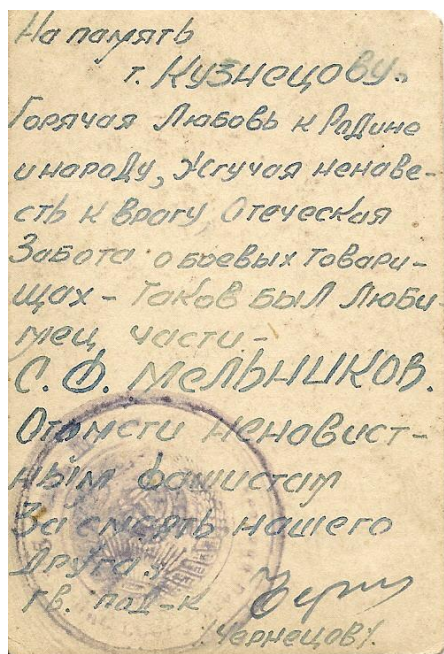 На память
т. Кузнецову.
Горячая любовь к Родине
и народу, жгучая ненаве-
сть к врагу, отеческая
забота о боевых товари-
щах - таков был люби-
мец части -
С. Ф. Мельников.
Отомсти ненавист-
ным фашистам
за смерть нашего
друга.
гв. под-к
(Чернецов).